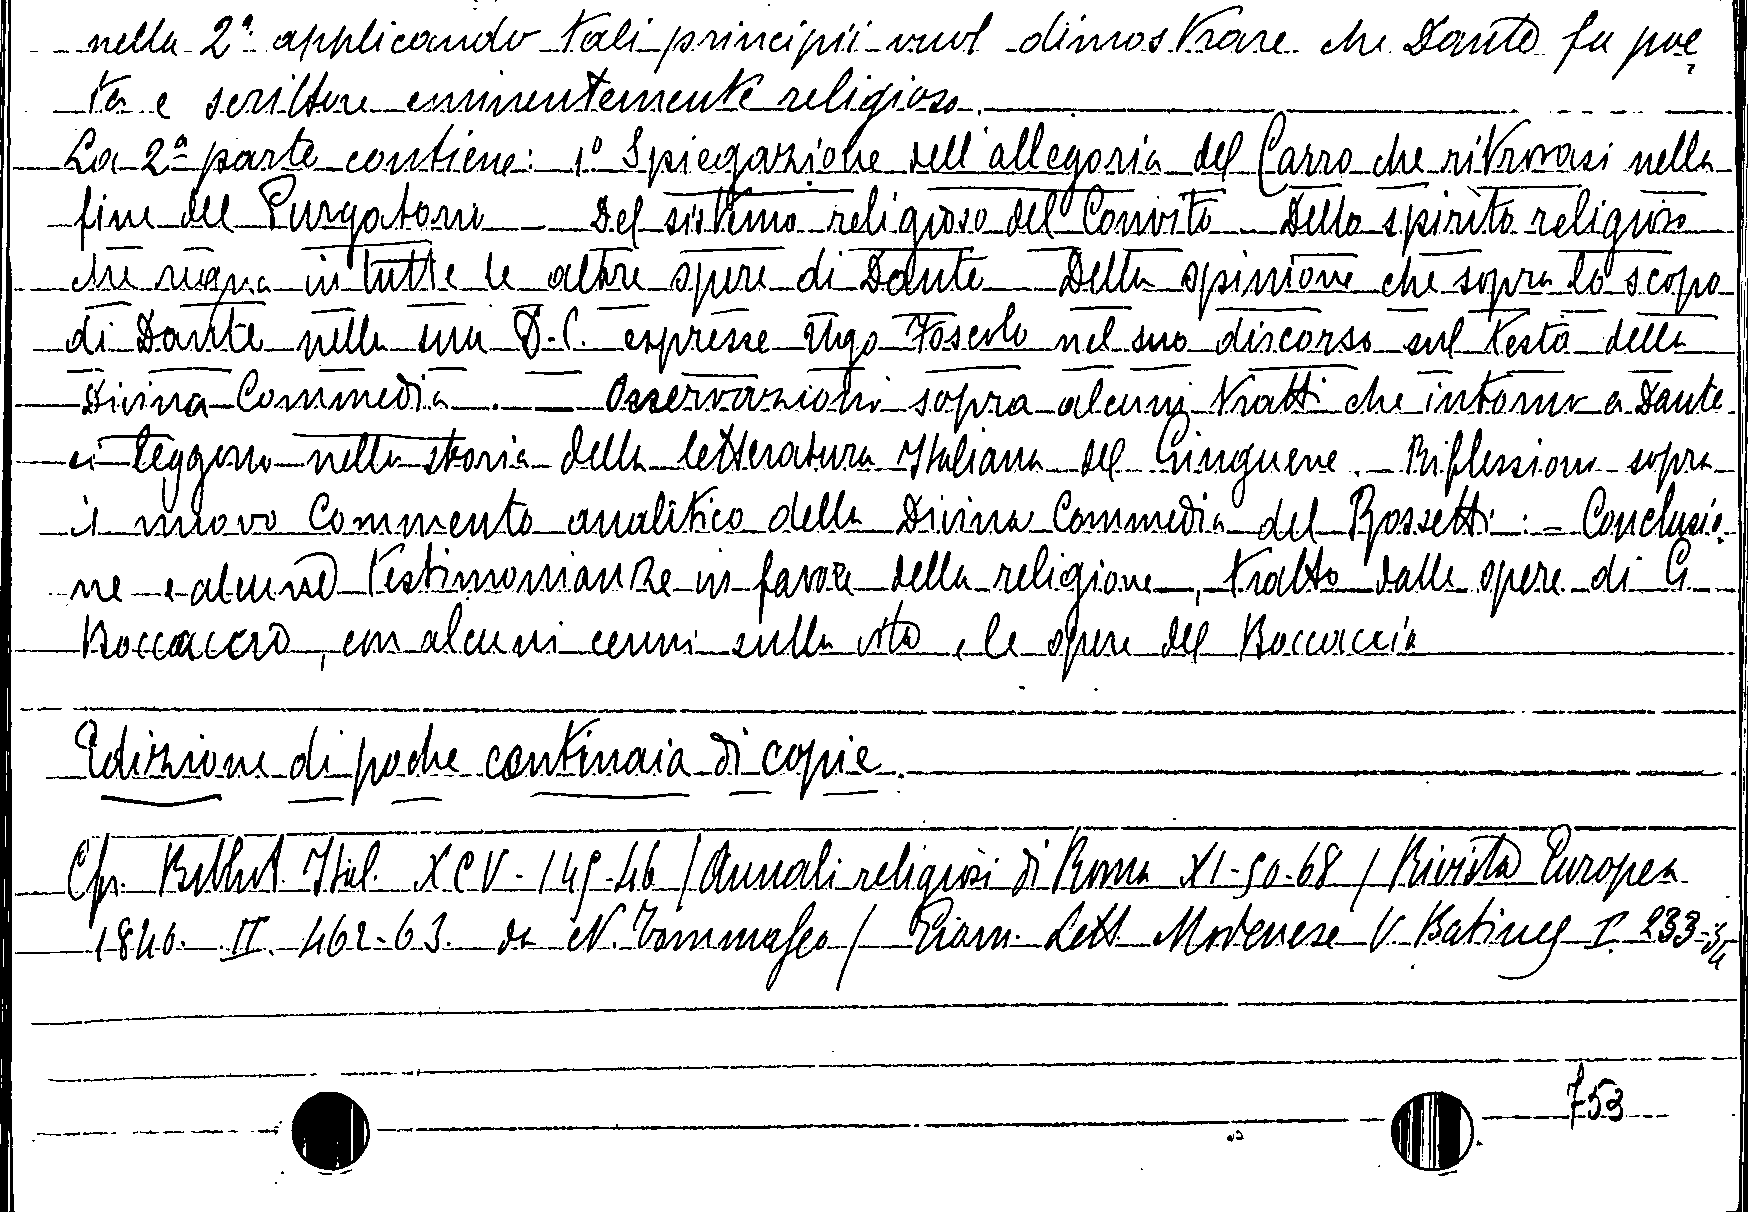 nella 2ª applicando tali principii vuol dimostrare che Dante fu poe
ta e scrittore eminentemente religioso.
La 2ª parte contiene: 1º Spiegazione dell'allegoria del Carro che ritrovasi nella
fine del Purgatorio - Del sistema religioso del Convito - Dello spirito religioso
che regna in tutte le altre opere di Dante - Della opinione che sopra lo scopo
di Dante nella sua D.C. espresse Ugo Foscolo nel suo discorso sul testo della
Divina Commedia. - Osservazioni sopra alcuni tratti che intorno a Dante
si leggono nella storia della letteratura Italiana del Ginguené. - Riflessioni sopra
il nuovo Commento analitico della Divina Commedia del Rossetti: - Conclusio
ne e alcune testimonianze in favore della religione, tratte dalle opere di G.
Boccaccio, con alcuni cenni sulla vita e le opere del Boccaccio
Edizione di poche centinaia di copie.
Cfr. Ital. XCV. 145-46 / Annali religiosi di Roma XI-50-68 / Rivista Europea
1840. II. 462-63. da N. Tommaseo / Giorn. Lett. Modenese V. Batines I. 233-34
753